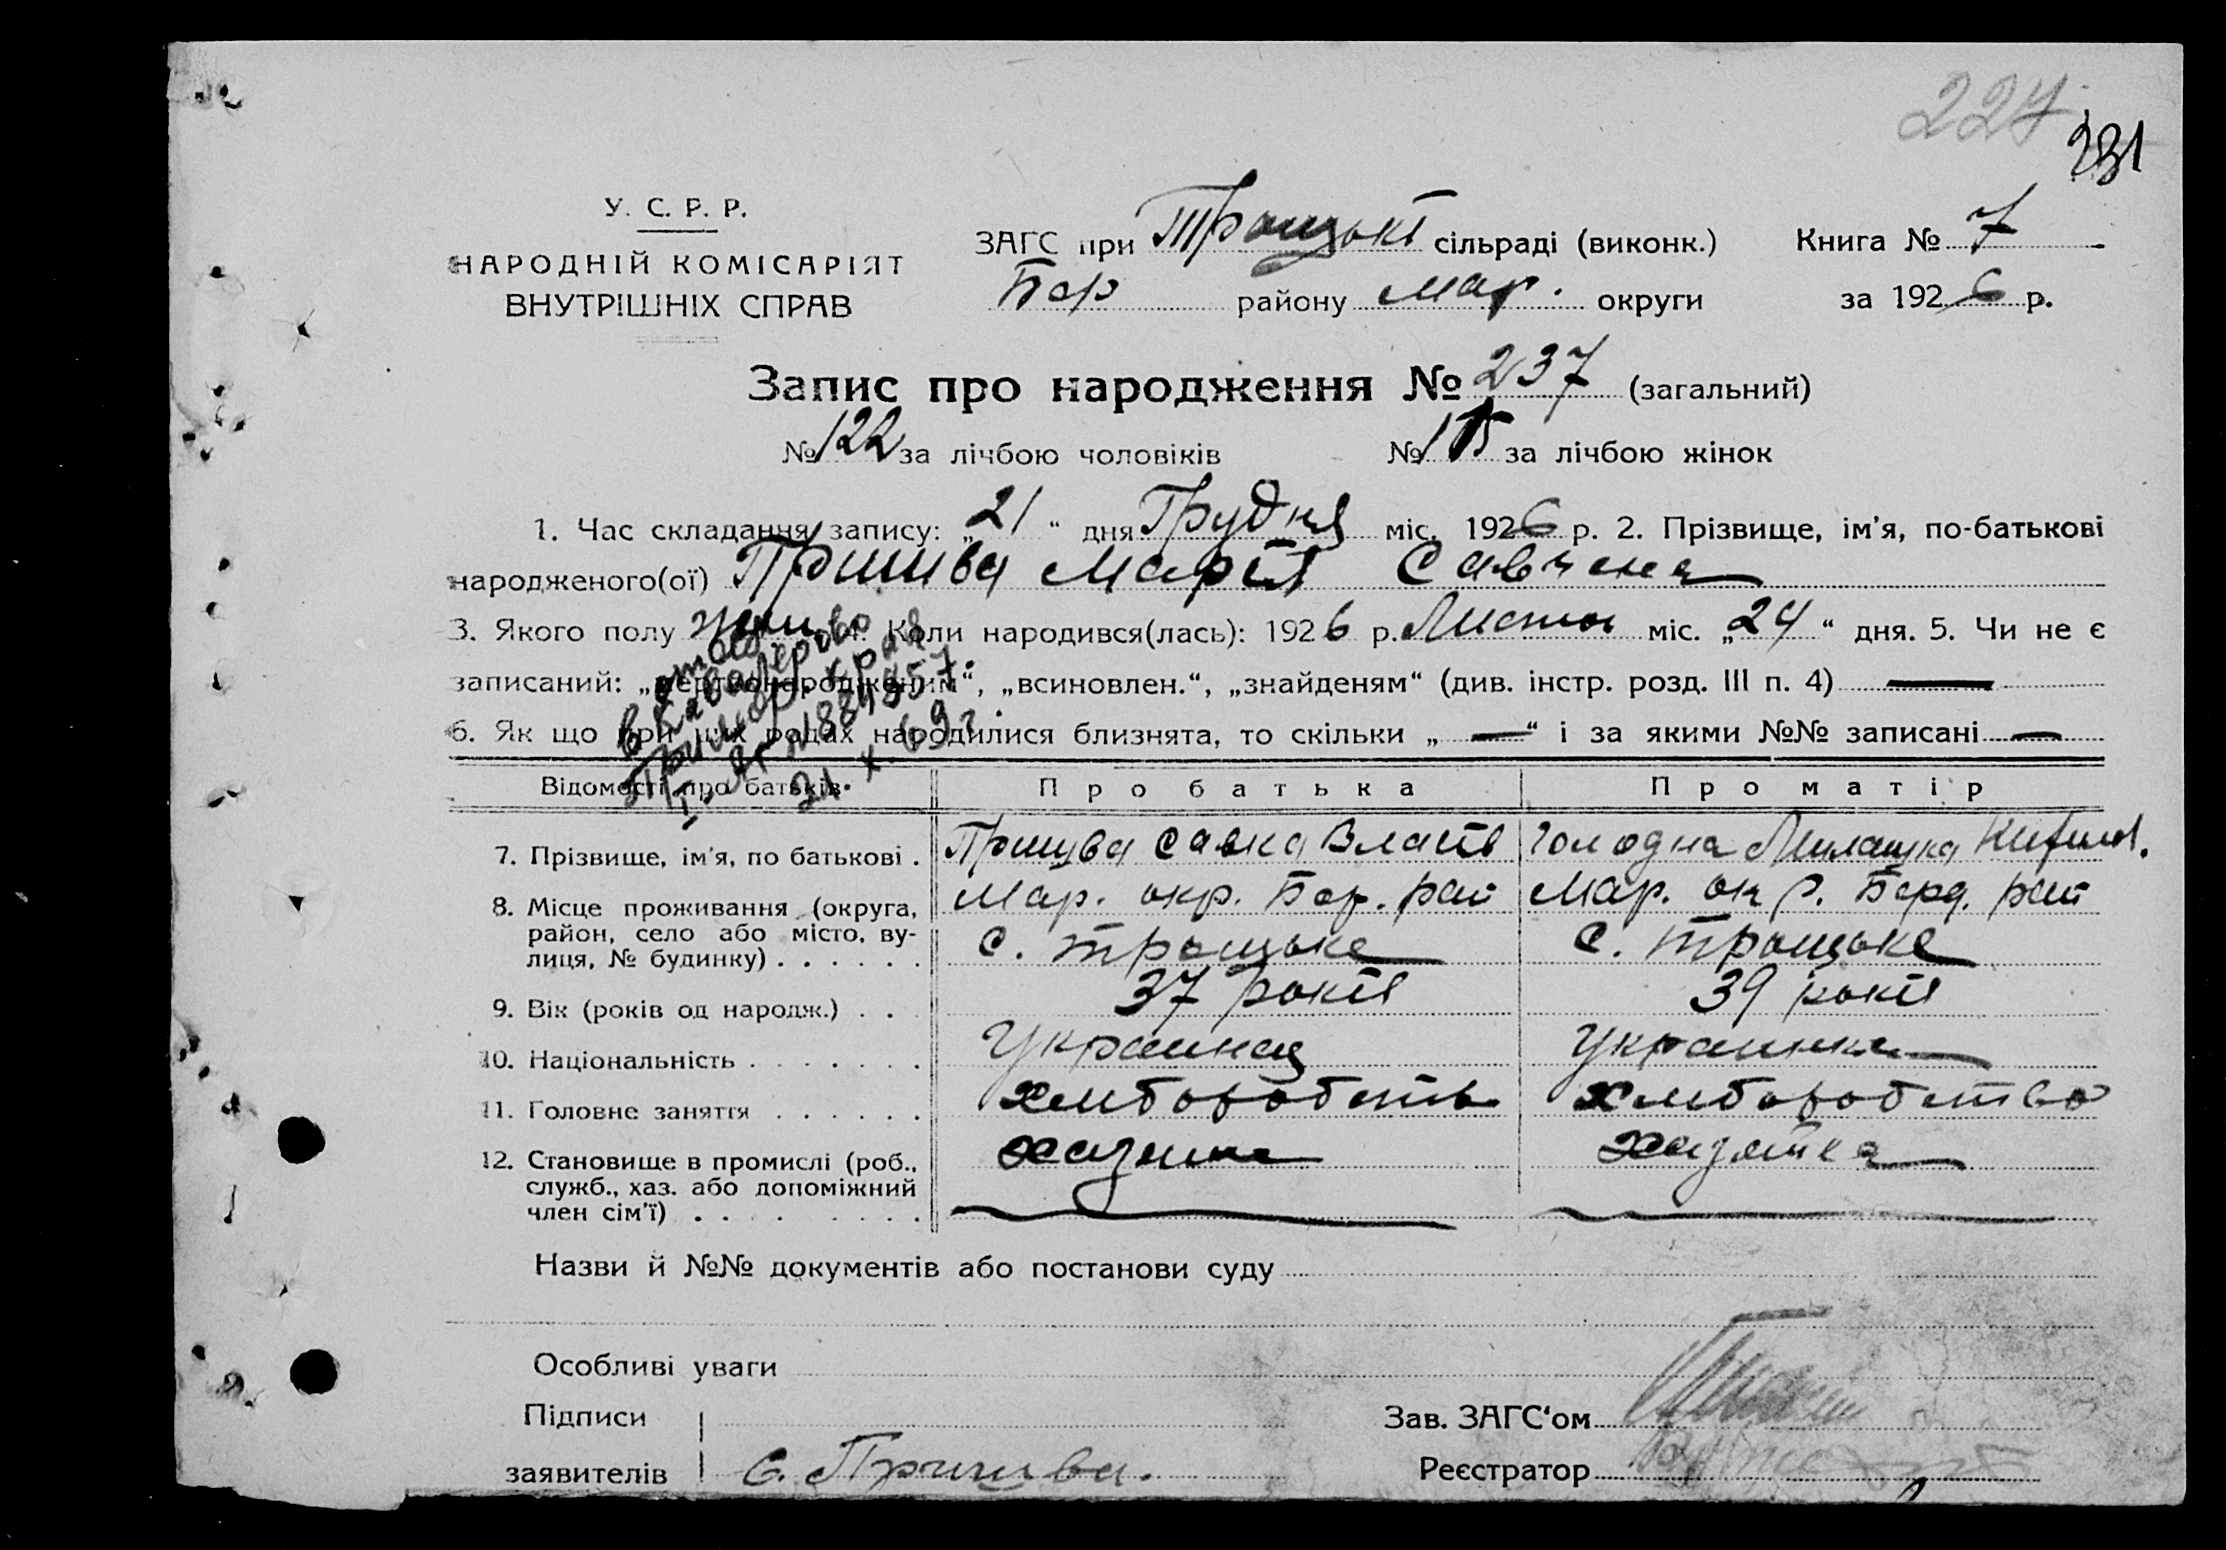 227
231
У. С. Р. Р.
НАРОДНІЙ КОМІСАРІЯТ
ВНУТРІШНІХ СПРАВ
ЗАГС при Троцькі сільраді (виконк.) Книга № 7
Бер району Мар. округи за 1926 р.
Запис про народження № 237 (загальний)
№ 122 за лічбою чоловіків № 115 за лічбою жінок
1. Час складання запису: „21“ дня Грудня міс. 1926 р. 2. Прізвище, ім'я, по-батькові
народженого(ої) Пришва Марія Савчена
3. Якого полу жін. 4. Коли народився(лась): 1926 р. Листоп міс. „24“ дня. 5. Чи не є
записаний: „мертвонародженим“, „всиновлен.“, „знайденям“ (див. інстр. розд. III п. 4) —
6. Як що при цих родах народилися близнята, то скільки „ — “ і за якими №№ записані —
21 X 69 г.
Відомості про батьків. Про батька Про матір
7. Прізвище, ім'я, по батькові . Пришва Савка Власів Голодна Милашка
8. Місце проживання (округа, Мар. окр. Бер. рай Мар. окр. Берд. рай
район, село або місто, ву- с. Троцьке с. Троцьке
лиця, № будинку) . . . . . .
9. Вік (років од народж.) . . . 37 років 39 років
10. Національність . . . . . . . Украинец Украинка
11. Головне заняття . . . . . . хлиборобство хлиборобство
12. Становище в промислі (роб., хазяин хазяйка
служб., хаз. або допоміжний
член сім'ї) . . . . . . . .
Назви й №№ документів або постанови суду
Особливі уваги
Підписи Зав. ЗАГС‘ом
заявителів С. Пришва. Реєстратор